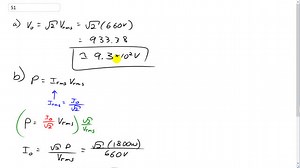 51
a) V₀ = √2 Vrms = √2 (660V)
= 933.38
≈ 9.3×10² V
b) P = Irms Vrms
Irms = I₀/√2
(P = I₀/√2 Vrms) √2/Vrms
I₀ = √2 P / Vrms = √2 (1800W) / 660V